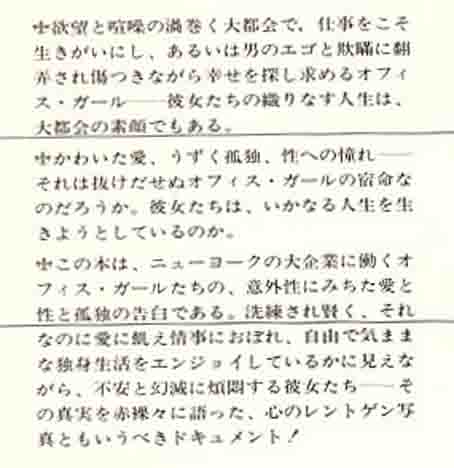 ✢欲望と喧噪の渦巻く大都会で、仕事をこそ
生きがいにし、あるいは男のエゴと欺瞞に翻
弄され傷つきながら幸せを探し求めるオフィ
ス・ガール──彼女たちの織りなす人生は、
大都会の素顔でもある。
✢かわいた愛、うずく孤独、性への憧れ──
それは抜けだせぬオフィス・ガールの宿命な
のだろうか。彼女たちは、いかなる人生を生
きようとしているのか。
✢この本は、ニューヨークの大企業に働くオ
フィス・ガールたちの、意外性にみちた愛と
性と孤独の告白である。洗練され賢く、それ
なのに愛に飢え情事におぼれ、自由で気まま
な独身生活をエンジョイしているかに見えな
がら、不安と幻滅に煩悶する彼女たち──そ
の真実を赤裸々に語った、心のレントゲン写
真ともいうべきドキュメント！